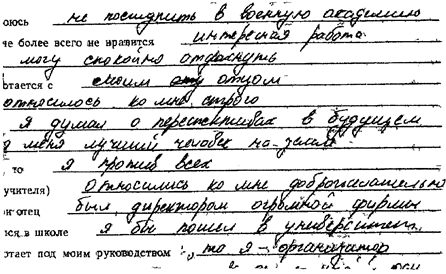 оюсь не поступить в военную академию
не более всего не нравится интересная работа
могу спокойно отдохнуть
отается с своим отцом
относилось ко мне строго
я думал о перспективах в будущем
я меня лучший человек на земле
то я против всех
учителя) относились ко мне доброжелательно
отец был директором огромной фирмы
ся в школе я бы пошел в университет
отает под моим руководством, то я - организатор